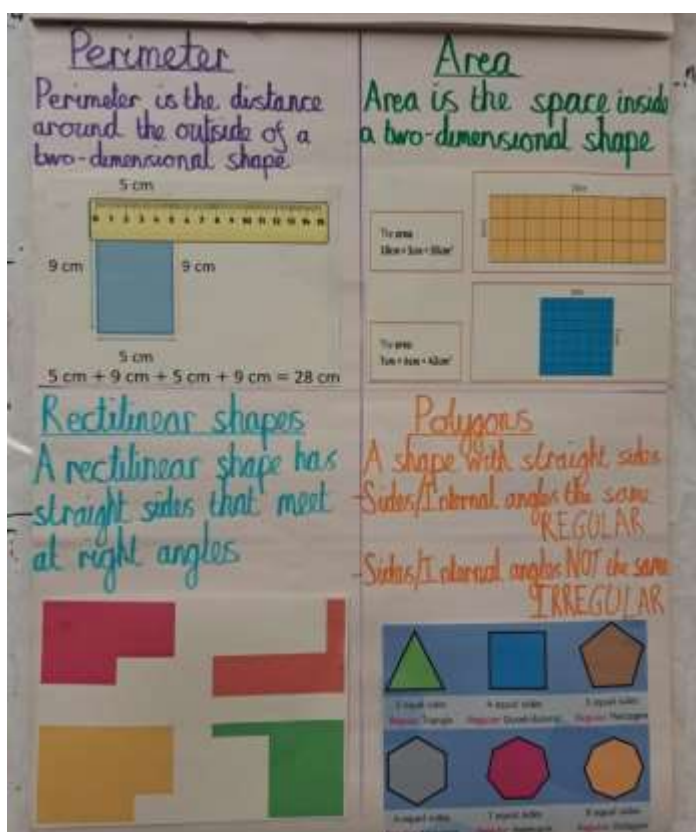 Perimeter
Perimeter is the distance
around the outside of a
two-dimensional shape
5 cm
0 1 2 3 4 5 6 7 8 9 10 11 12 13 14 15
9 cm 9 cm
5 cm
5 cm + 9 cm + 5 cm + 9 cm = 28 cm
Area
Area is the space inside
a two-dimensional shape
The area
The area
7cm × 6cm = 42cm²
Rectilinear shapes
A rectilinear shape has
straight sides that meet
at right angles
Polygons
A shape with straight sides
-Sides/Internal angles the same
REGULAR
-Sides/Internal angles NOT the same
IRREGULAR
3 equal sides 4 equal sides 5 equal sides
Regular Triangle Regular Quadrilateral Regular Pentagon
6 equal sides 7 equal sides 8 equal sides